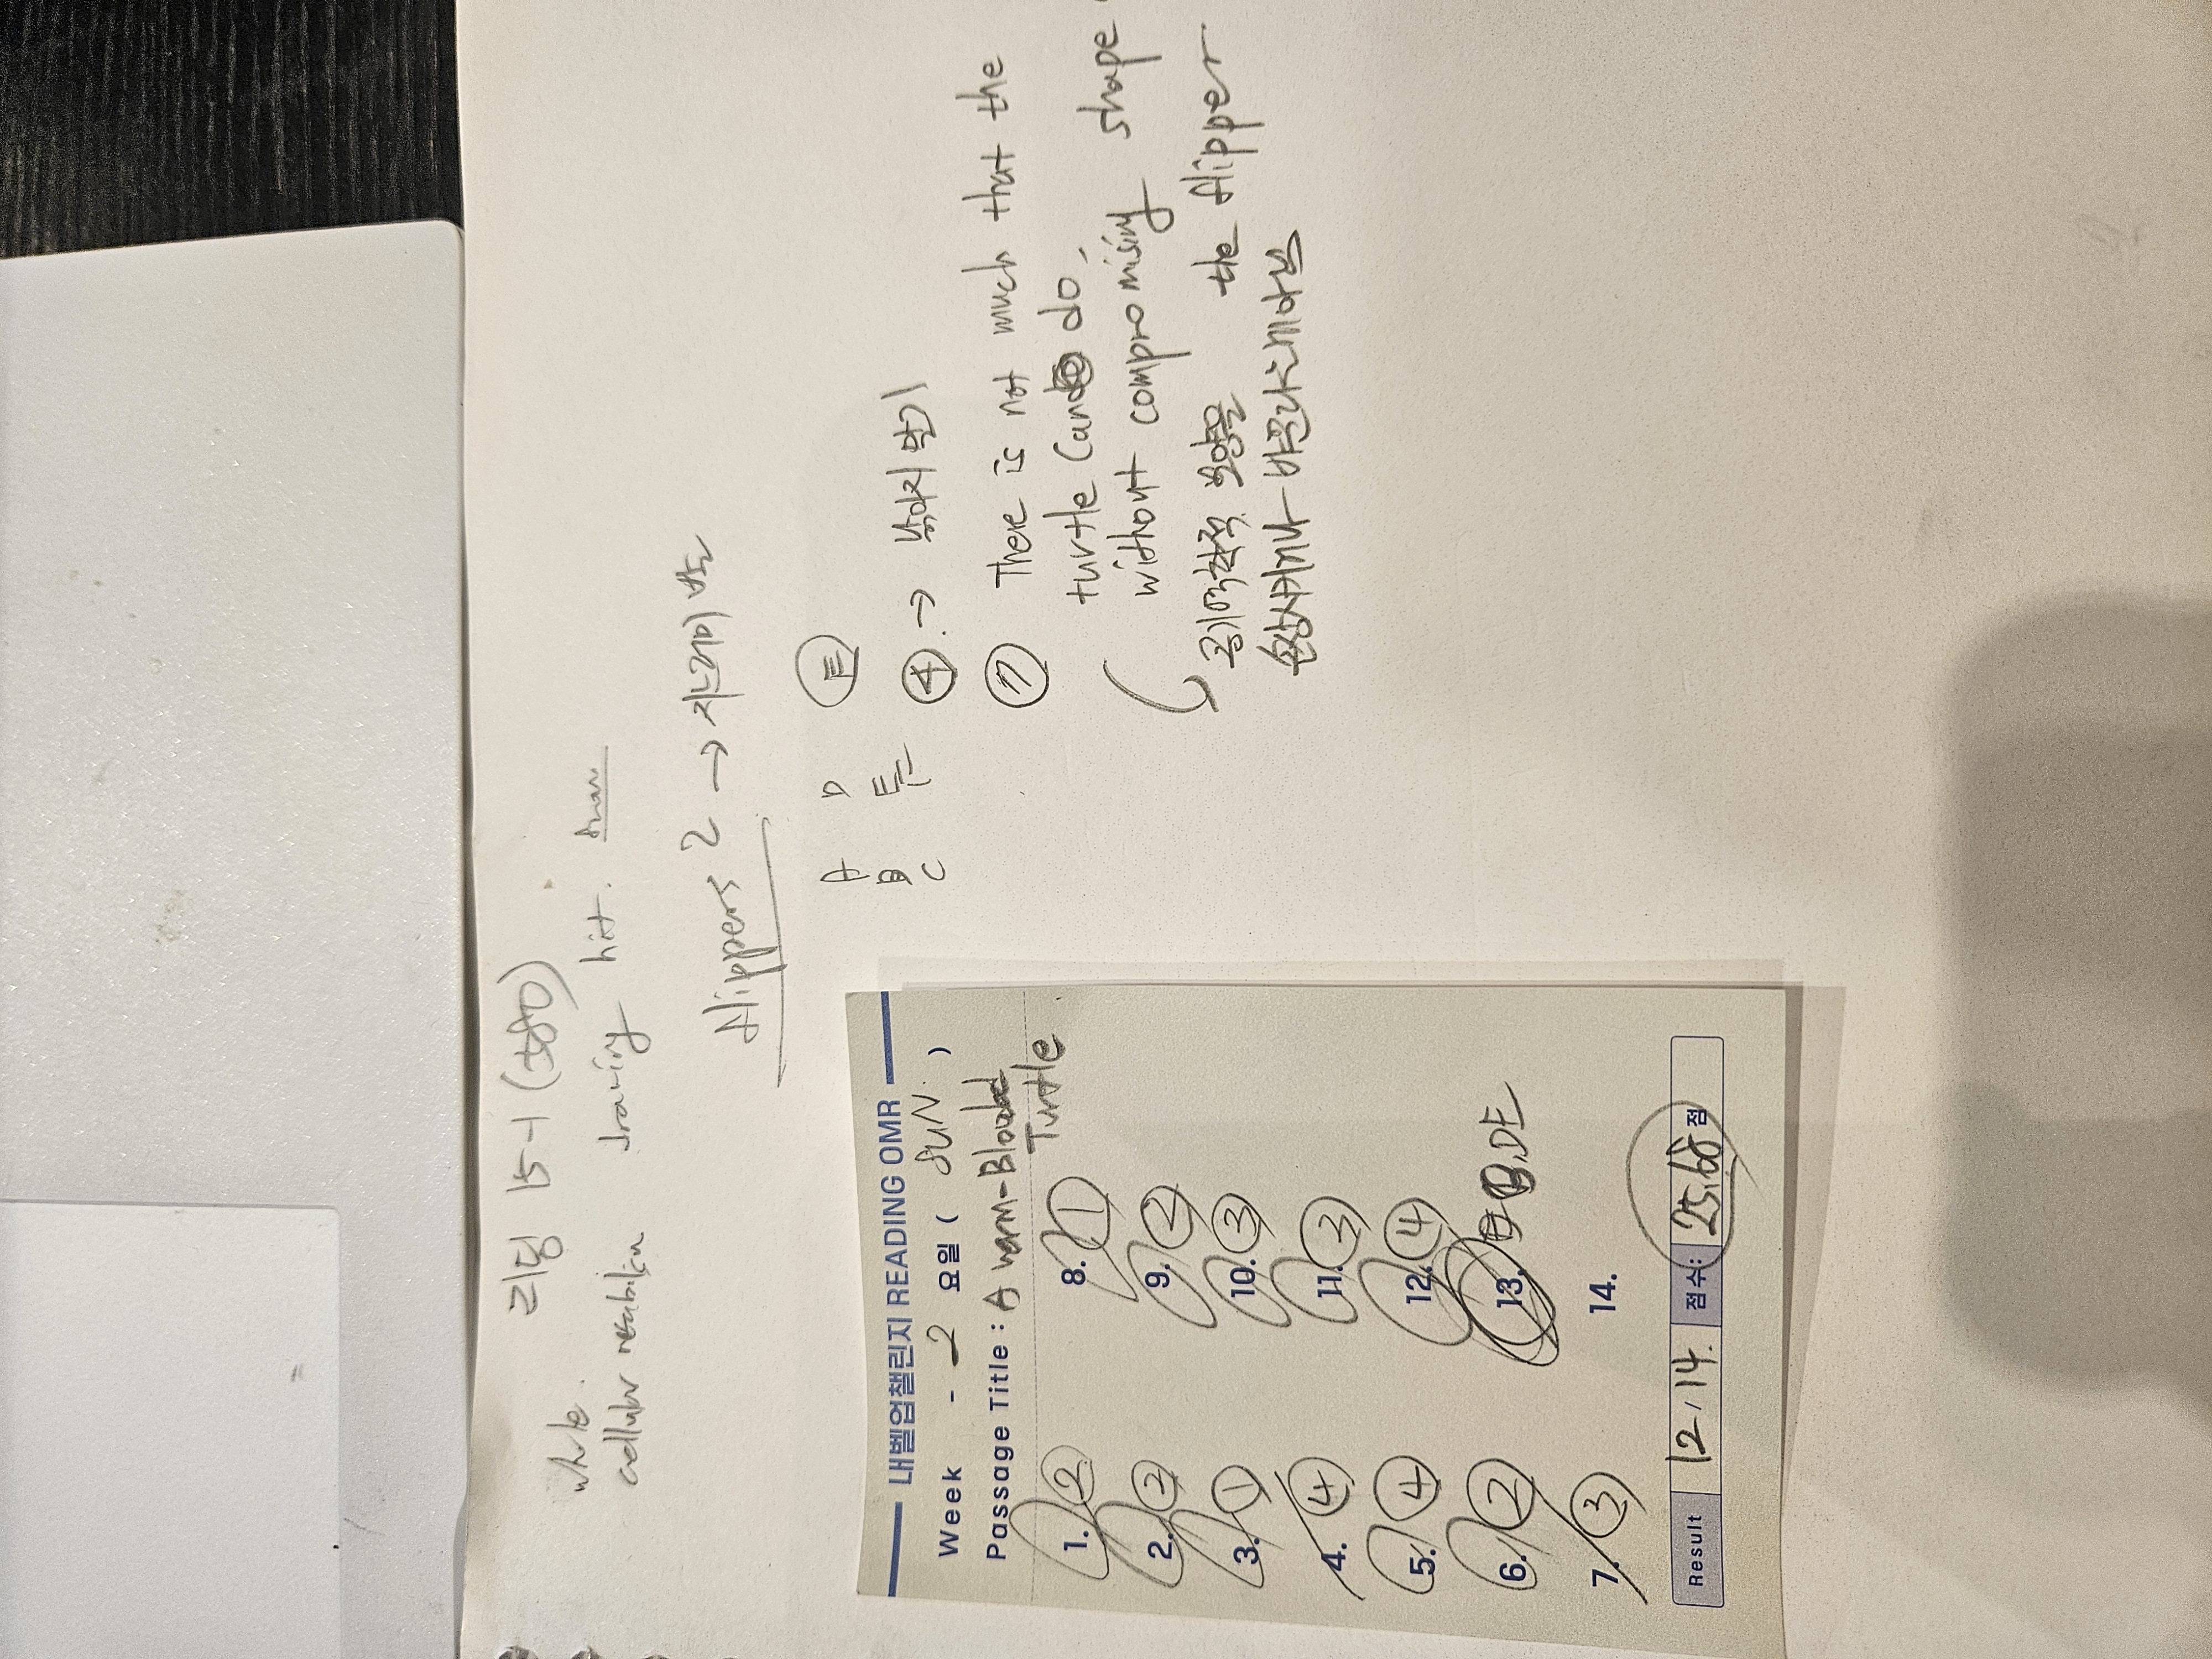 리딩 15-1 (380)
whole.
cellular metabolism having hit.
flippers 2 → 지느러미 발
A D E
B 튼
C
④ → 낮아지 막기
⑦ There is not much that the
turtle can do,
without compromising shape
the flipper
공기역학적 모양을
손상시키거나 바꾼다는게아님
내벨업챌린지 READING OMR
Week - 2 요일 ( SUN. )
Passage Title : A warm-Blooded
Turtle
1. ②
2. ②
3. ①
4. ④
5. ④
6. ②
7. ③
8. ①
9. ②
10. ③
11. ③
12. ④
13. B.DE
14.
Result 12 / 14. 점수: 25.68 점